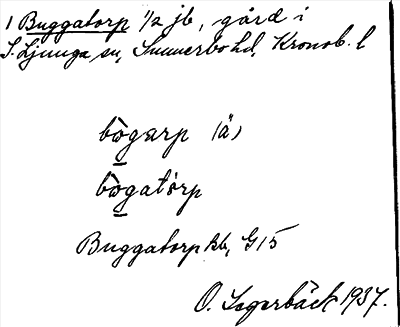 1 Buggatorp 1/2 jb, gård i
S. Ljunga sn, Sunnerbo hd, Kronob. l
bògarp (ä)
bògatórp
Buggatorp kb, G15
O. Lagerbäck 1937.